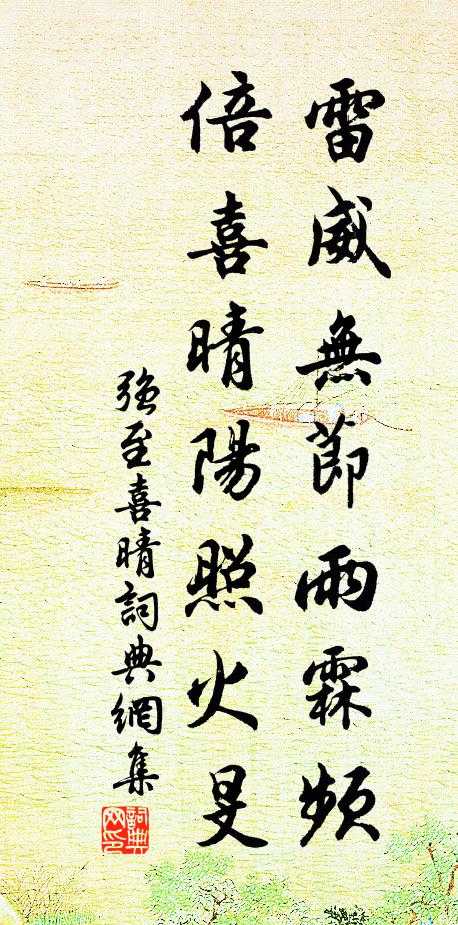 雷威無節雨霖頻
倍喜晴陽照火旻
強至喜晴詞典網集
詞典网印